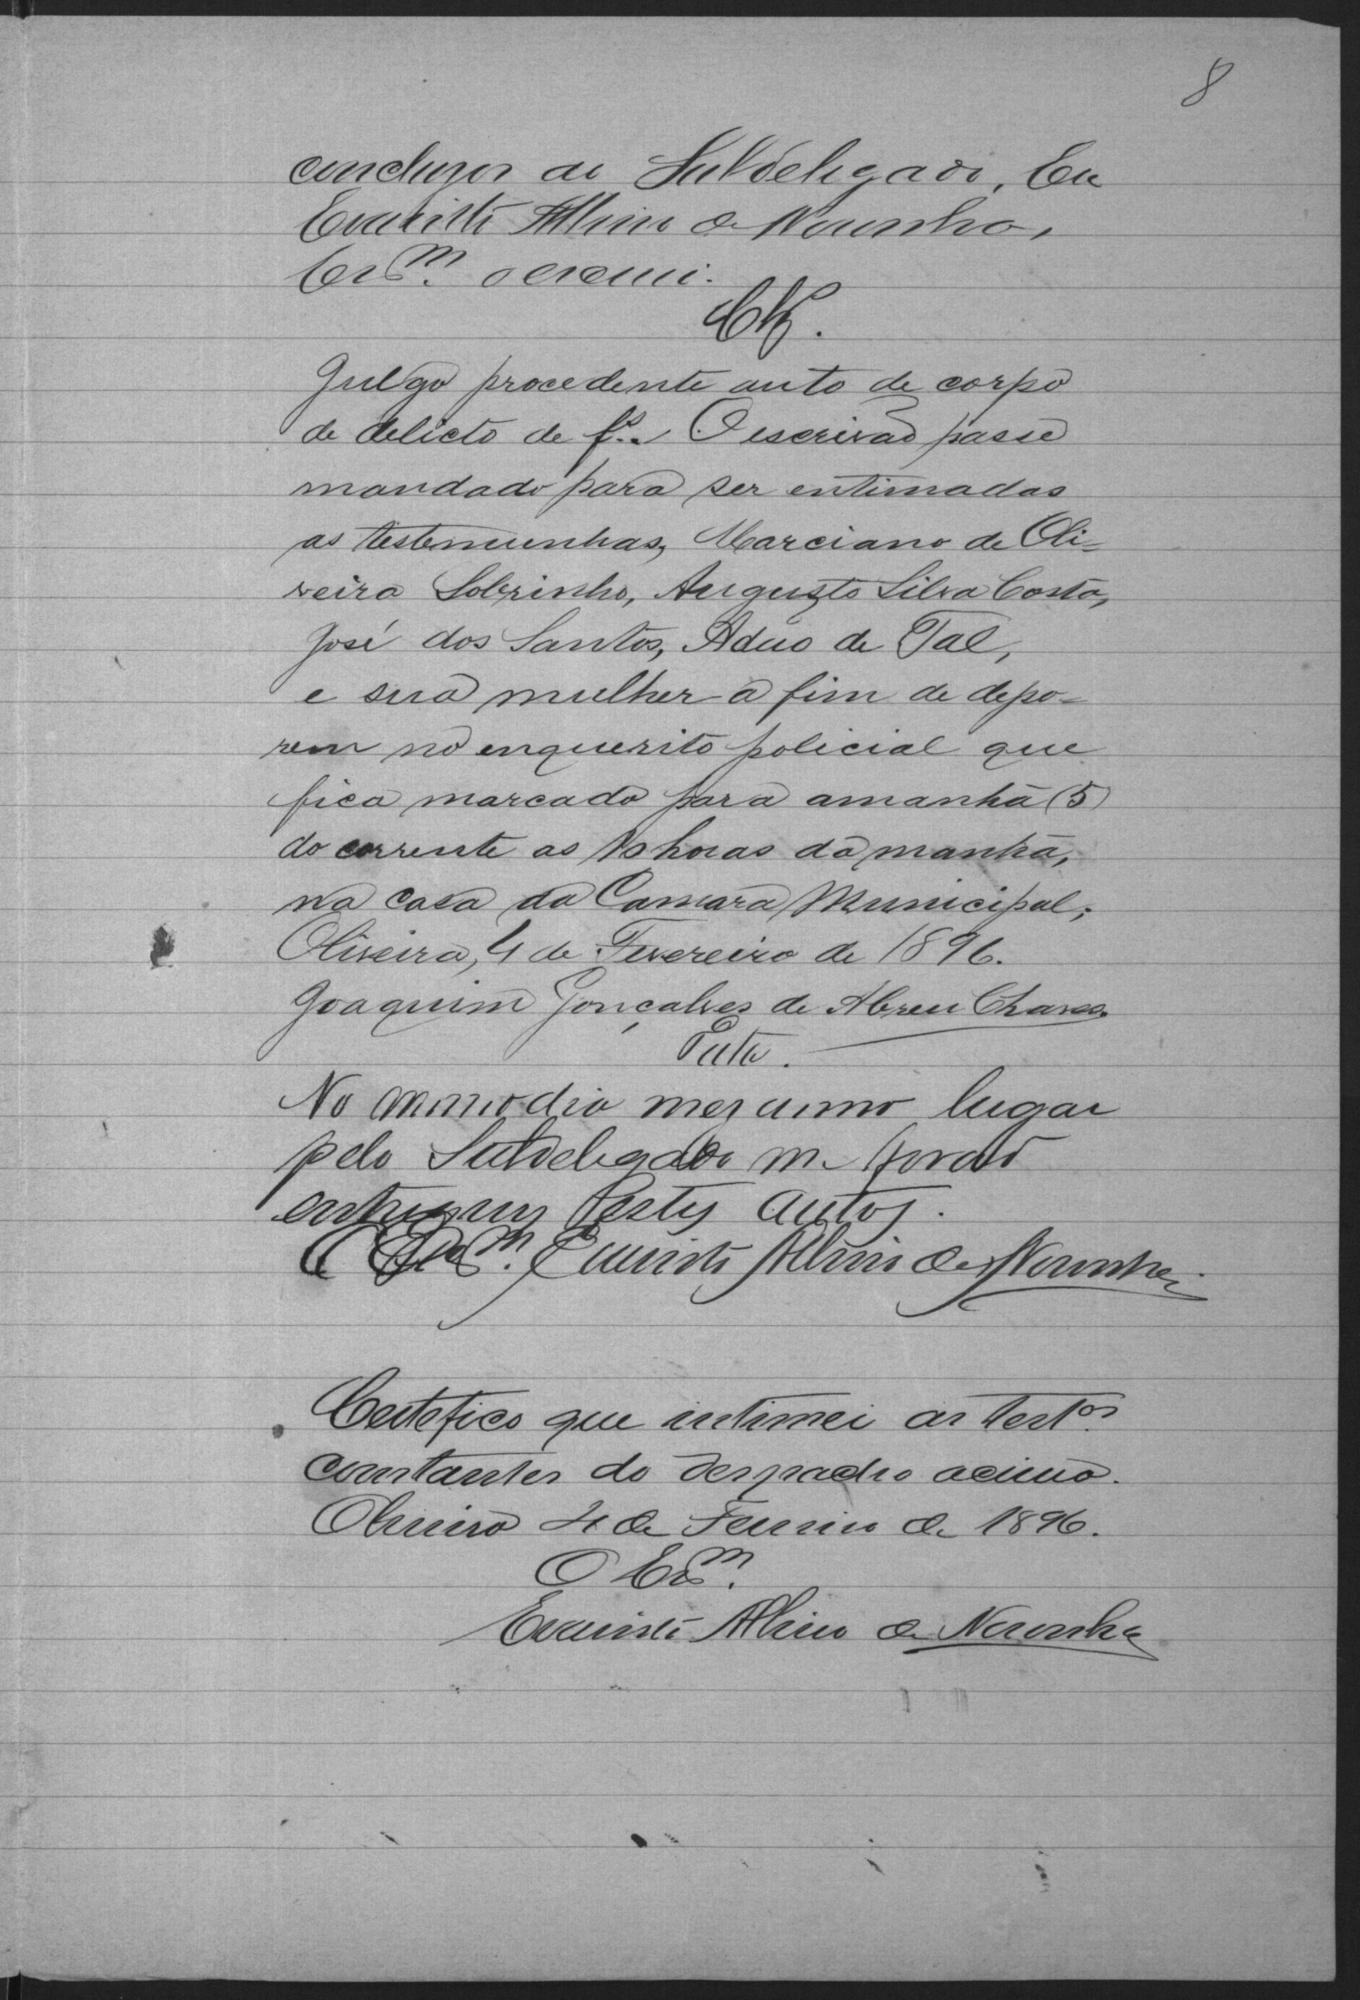 8
conclusos ao Subdelegado. Eu
Evaristo Albino de Noronha,
Escm. o escrevi.
Clz.
Julgo procedente auto de corpo
de delicto de fs. O escrivão passe
mandado para ser entimadas
as testemunhas, Marciano de Oli-
veira Sobrinho, Augusto Silva Costa,
José dos Santos, Aduo de Tal,
e sua mulher a fim de depo-
rem no enquerito policial que
fica marcado para amanhã (5)
do corrente as 10 horas da manhã,
na casa da Camara Municipal;
Oliveira, 4 de Fevereiro de 1896.
Joaquim Gonçalves de Abreu Chaves
Data.
No mesmo dia mez anno lugar
pelo Subdelegado me forão
entregues estes autos.
O Escm. Evaristo Albino de Noronha
Certefico que intimei as testas.
constantes do despacho acima.
Oliveira 4 de Fevereiro de 1896.
O Escm.
Evaristo Albino de Noronha